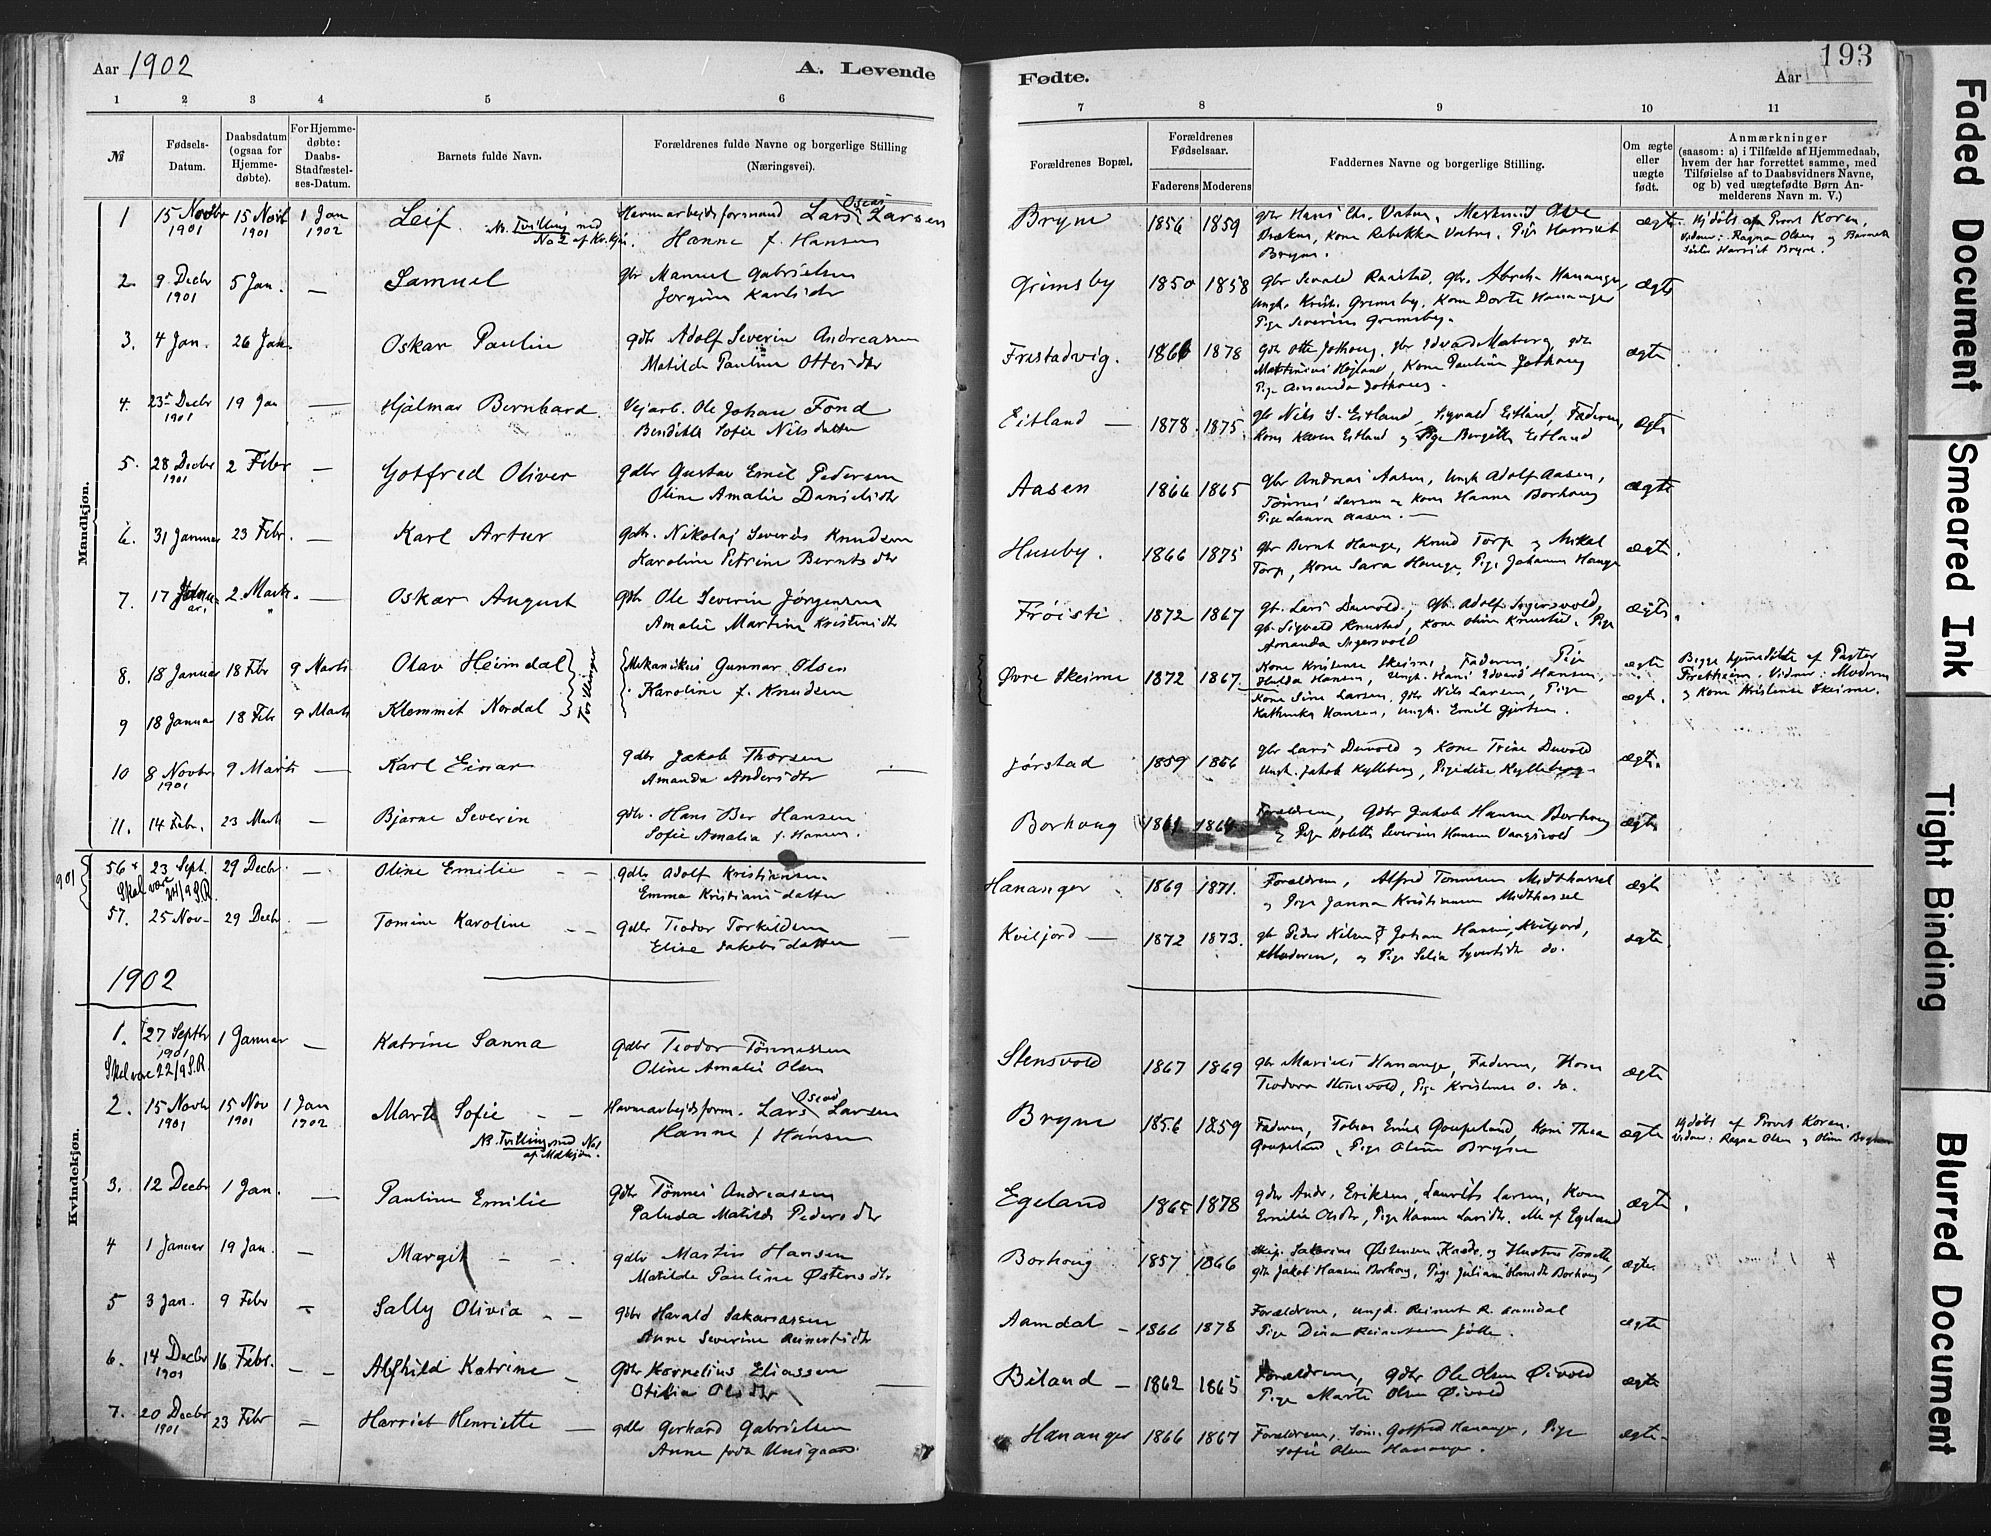 Aar 1902
A. Levende
1 2 3 4 5 6
№
Fødsels-
Datum.
Daabsdatum
(ogsaa for
Hjemme-
døbte).
For Hjemme-
døbte:
Daabs-
Stadfæstel-
ses-Datum.
Barnets fulde Navn.
Forældrenes fulde Navne og borgerlige Stilling
(Næringsvei).
Mandkjøn.
1 15 Novbr 15 Novb 1 Jan Leif Havnearbeidsformand Lars Oscar Larsen
1901 1901 1902 NB. Tvilling med Hanne f. Hansen
No 2 af Kv.kjøn.
2. 9 Decbr 5 Jan. — Samuel gbr Manuel Gabrielsen
1901
3. 4 Jan. 26 Jan. Oskar Paulin gdbr Adolf Severin Andreasen
Matilde Pauline Ottesdtr
4. 23 Decbr 19 Jan — Hjalmar Bernhard Vejarb. Ole Johan Fond
1901 Sofie Nilsdatter
5. 28 Decbr 2 Febr — Gotfred Oliver gdbr Gustav Emil Pedersen
1901 Oline Amalie Danielsdtr
6. 31 Januar 23 Febr. — Karl Artur gdb. Nikolaj Severin Knudsen
Karoline Petrine Berntsdtr
7. 17 Januar. 2 Marts. — Oskar August gdb Ole Severin Jørgensen
Amalie Martine Kristensdtr
8. 18 Januar 18 Febr 9 Marts Olav Heimdal Mekanikus Gunnar Olsen
Karoline f. Knudsen
9 18 Januar 18 Febr 9 Marts Klemmet Nordal Tvillinger
10 8 Novbr 9 Marts — Karl Einar gdbr Jakob Thorsen
1901 Amanda Andersdtr
11. 14 Febr. 23 Marts — Bjarne Severin gdbr. Hans Ber Hansen
Sofie Amalia f. Hansen.
901
56 23 Sept. 29 Decbr. — Oline Emilie — gdbr Adolf Kristiansen
Skal være 24/9 S.R. Emma Kristiansdatter
57. 25 Nov- 29 Decbr. — Tomine Karoline — gdbr Teodor Torkildsen
Elise Jakobsdatter
1902
Kvindekjøn.
1. 27 Septbr 1 Januar — Katrine Sanna gdbr Teodor Tönnessen
1901 Oline Amalie Olsen
Skal være 22/9 S.R.
2. 15 Novbr 15 Nov 1 Jan Marte Sofie — Havnearbejdsform. Lars Oscar Larsen
1901 1901 1902 NB. Tvilling med No 1 Hanne f Hansen
af Mdkjøn.
3. 12 Decbr 1 Jan. — Pauline Emilie gdbr Tönnes Andreassen
Matilde Pedersdtr
4 1 Januar 19 Jan. — Margit — gdbr Martin Hansen
Matilde Pauline Østensdtr
5 3 Jan. 9 Febr — Sally Olivia — gdbr Harald Sakariassen
Anne Severine Reinertsdtr
6. 14 Decbr 16 Febr. — Alfhild Katrine — gdbr Kornelius Eliassen
1901 Otilia Olsdtr
7. 20 Decbr 23 Febr — Harriet Henriette — gdbr Gerhard Gabrielsen
1901 Anne
193
Fødte.
Aar
7 8 9 10 11
Forældrenes Bopæl.
Forældrenes
Fødselsaar.
Faderens Moderens
Faddernes Navne og borgerlige Stilling.
Om ægte
eller
uægte
født.
Anmærkninger
(saasom: a) i Tilfælde af Hjemmedaab,
hvem der har forrettet samme, med
Tilføielse af to Daabsvidners Navne,
og b) ved uægtefødte Børn An-
melderens Navn m. V.)
Bryne 1856 1859 gbr Hans Chr. Vatne, Ove ægte. Hjdøbt af Provst Koren,
Kone Rebekka Vatne, Pige Harriet Vidner: Ragna Olsen og Barnets
Bryne. Søster Harriet Bryne.
Grimsby 1850 1858 gbr. Abraha Hananger, ægte
Ungk. Krist. Grimsby, Kone Dorte Hananger
Pige Severine Grimsby.
Frestadvig. 1866 1878 gdb Otte Jothaug, gbr Edvard Maberg, gdb ægte
Kone Pauline Jothaug
Pige Amanda Jothaug.
Eitland — 1878 1875 gb Nils S. Eitland, Sigvald Eitland, Faderen, ægte
Kone Karen Eitland og Pige Bergitte Eitland
Aasen 1866 1865 gbr Andreas Aasen, Ungk Adolf Aasen, ægte
Tönnes Larsen og Kone Hanna Borhaug
Pige Laura Aasen. —
Huseby. 1866 1875 gbr Bernt Hauge, Knud Torp og Mikal ægte.
Torp, Kone Sara Hauge, Pige Johanne Hauge
Frøisti 1872 1867 gb. Lars Duvold, gb. Adolf Sigersvold, ægte.
gb. Sigvald Knustad, Kone Oline Knustad, Pige
Amanda Sigersvold
Øvre Skeime 1872 1867 Kone Kristense Skeime, Faderen, Pige ægte Begge hjemdøbte af Pastor
Hulda Hansen, Ungk. Hans Edvard Hansen, Fretheim. Vidner: Moderen
Kone Sine Larsen, gbr Nils Larsen, Pige ægte. og Kone Kristense Skeime.
Kathinka Hansen, Ungk. Emil Gjertsen.
Jørstad 1859 1866 gbr Lars Duvold og Kone Trine Duvold ægte.
Ungk. Jakob Kylleberg,
Borhaug 1861 1864 Forældrene, gdbr Jakob Hansen Borhaug ægte
og Pige Severine Hansen Vangsvold
Hananger 1869 1871. Forældrene, Alfred Tönnesen Midthassel ægte
og Pige Janna Kristiansen Midthassel
Kviljord — 1872 1873. gb Peder Nilsen, Johan Hansen, Kviljord, ægte
Moderen, og Pige Selia Syvertsdtr do.
Stensvold 1867 1869 gbr Marius Hananger, Faderen, Kone ægte
Teodora Stensvold, Pige Kristense O. do.
Bryne 1856 1859 Faderen, Tobias Emil Goupeland, Kone Thea ægte Hjdøbt af Provst Koren.
Goupeland, Pige Oline Bryne Vidner: Ragna Olsen og Oline Bryne
Egeland 1865 1878 gdbr Andr. Eriksen, Laurits Larsen, Kone ægte.
Emilie Olsdtr, Pige Hanne Larsdtr. alle af Egeland
Borhaug 1857 1866 Skip. Sakarias Østensen og Hustru Tonette, ægte.
gdb Jakob Hansen Borhaug, Pige Juliane Hansdtr Borhaug
Aamdal — 1866 1878 Forældrene, Ungk. Reinert R. Aamdal ægte
Pige Dina Reinertsen Jølle.
Biland — 1862 1865 Forældrene, gdbr Ole Olsen Øivold ægte
Pige Marte Olsen Øivold
Hananger 1866 1867 Forældrene, Gotfred Hananger, Pige ægte.
Sofie Olsen Hananger.
Faded Document
Smeared Ink
Tight Binding
Blurred Document